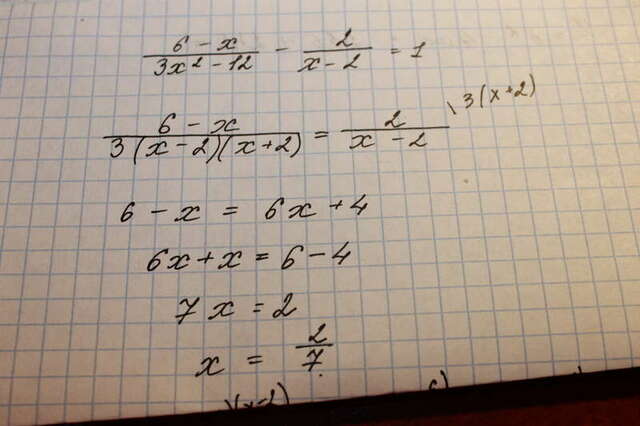 (6 - x)/(3x² - 12) - 2/(x - 2) = 1
(6 - x)/(3(x - 2)(x + 2)) = 2/(x - 2) \ 3(x+2)
6 - x = 6x + 4
6x + x = 6 - 4
7x = 2
x = 2/7